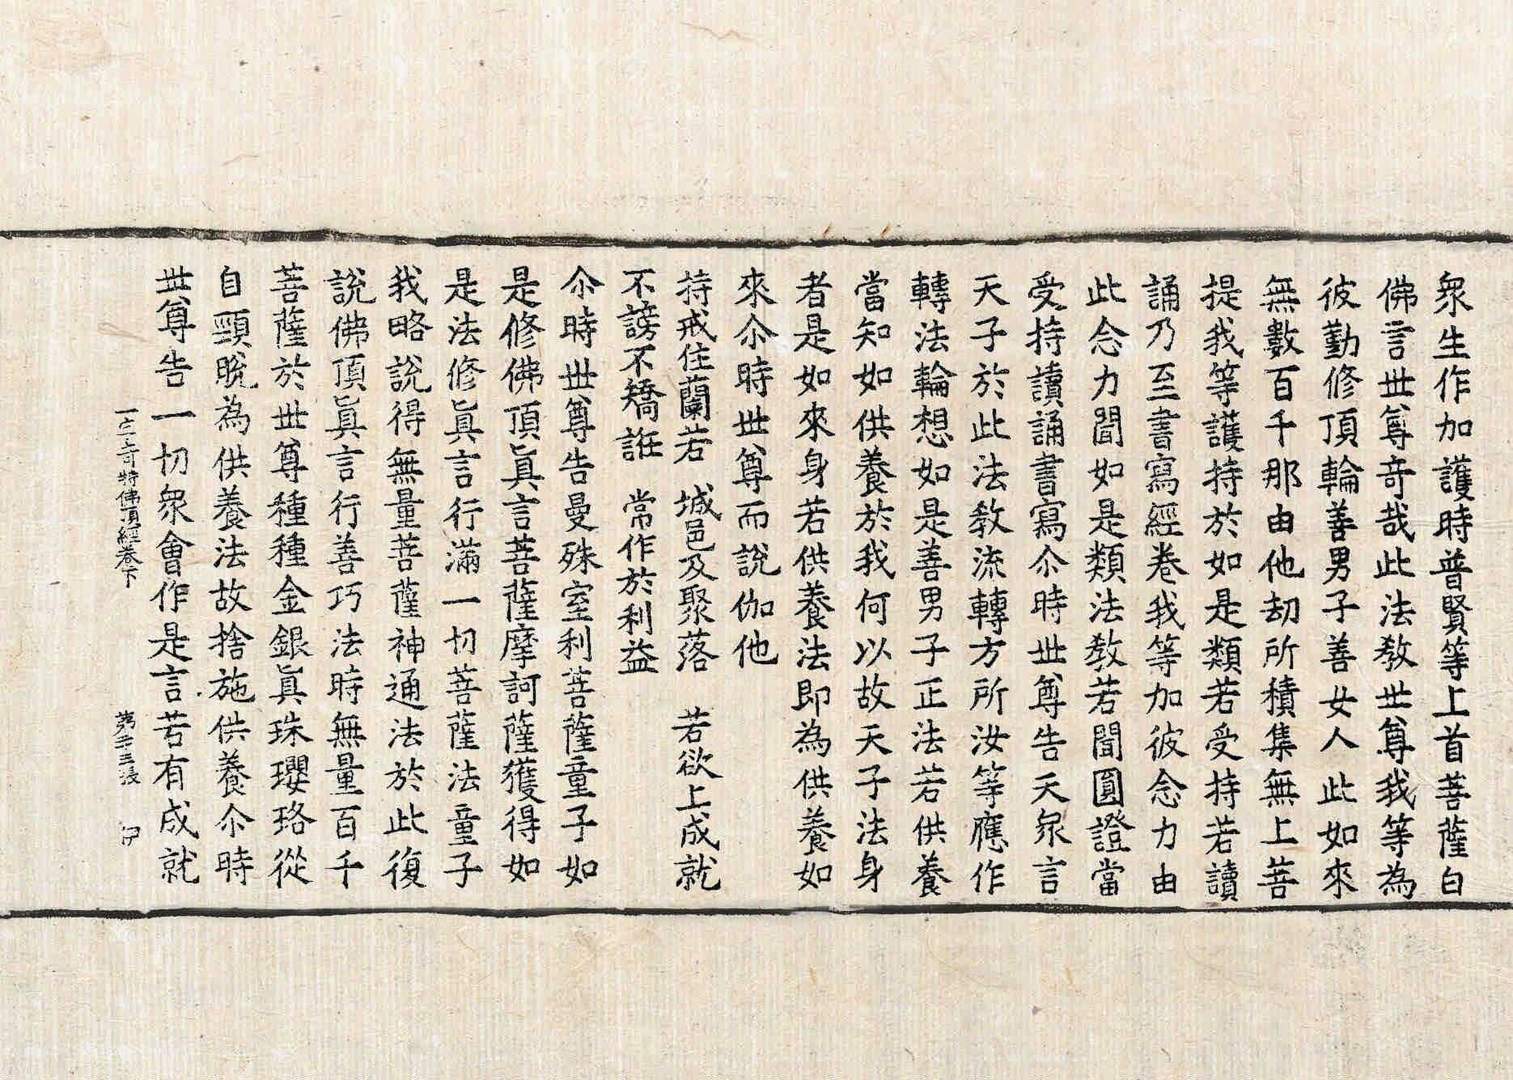 衆生作加護時普賢等上首菩薩白
佛言世尊奇哉此法教世尊我等為
彼勤修頂輪善男子善女人此如來
無數百千那由他劫所積集無上菩
提我等護持於如是類若受持若讀
誦乃至書寫經卷我等加彼念力由
此念力聞如是類法教若聞圓證當
受持讀誦書寫尒時世尊告天衆言
天子於此法教流轉方所汝等應作
轉法輪想如是善男子正法若供養
當知如供養於我何以故天子法身
者是如來身若供養法即為供養如
來尒時世尊而說伽他
持戒住蘭若　城邑及聚落　若欲上成就
不謗不矯誑　常作於利益
尒時世尊告曼殊室利菩薩童子如
是修佛頂眞言菩薩摩訶薩獲得如
是法修眞言行滿一切菩薩法童子
我略說得無量菩薩神通法於此復
說佛頂眞言行善巧法時無量百千
菩薩於世尊種種金銀眞珠瓔珞從
自頸脫為供養法故捨施供養尒時
世尊告一切衆會作是言若有成就
一字奇特佛頂經卷下　第二十三張　伊